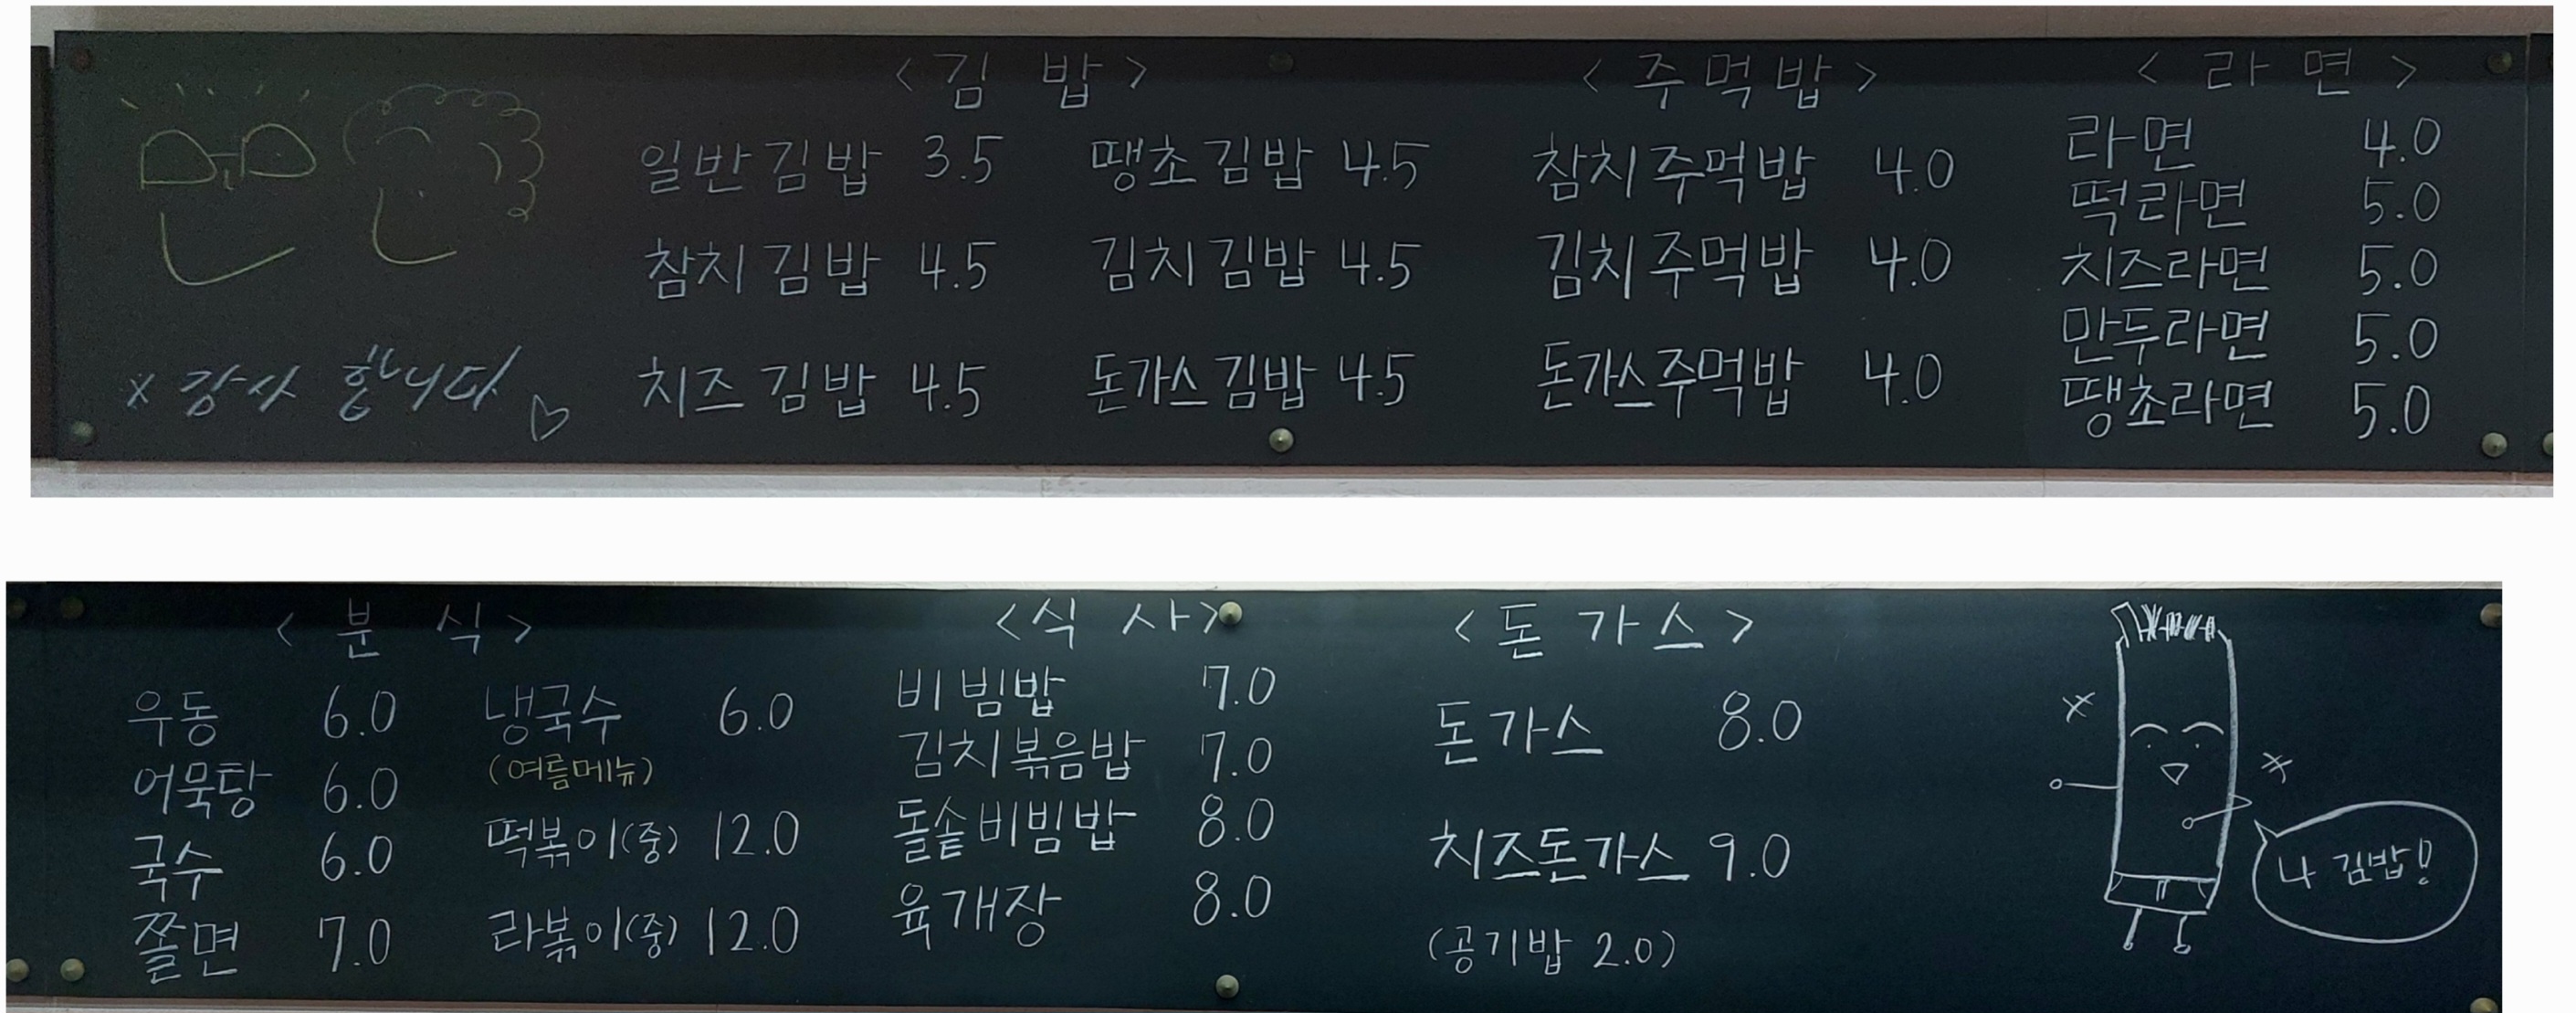 <김 밥>
일반김밥 3.5 땡초김밥 4.5
참치김밥 4.5 김치김밥 4.5
치즈김밥 4.5 돈가스김밥 4.5
<주먹밥>
참치주먹밥 4.0
김치주먹밥 4.0
돈가스주먹밥 4.0
<라면>
라면 4.0
떡라면 5.0
치즈라면 5.0
만두라면 5.0
땡초라면 5.0
* 감사 합니다 ♡
<분 식>
우동 6.0 냉국수 6.0
(여름메뉴)
어묵탕 6.0
국수 6.0 떡볶이(중) 12.0
쫄면 7.0 라볶이(중) 12.0
<식 사>
비빔밥 7.0
김치볶음밥 7.0
돌솥비빔밥 8.0
육개장 8.0
<돈 가 스>
돈가스 8.0
치즈돈가스 9.0
(공기밥 2.0)
나 김밥!